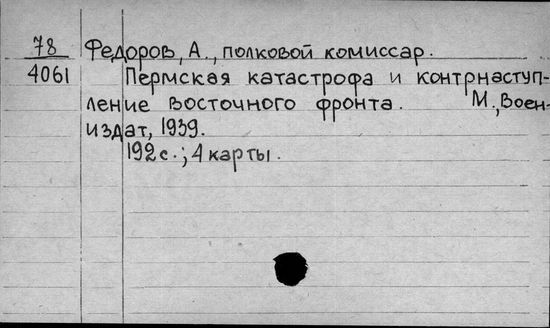 78 Федоров, А., полковой комиссар.
4061 Пермская катастрофа и контрнаступ-
ление Восточного фронта. М., Воен-
издат, 1939.
192 с.; 4 карты.